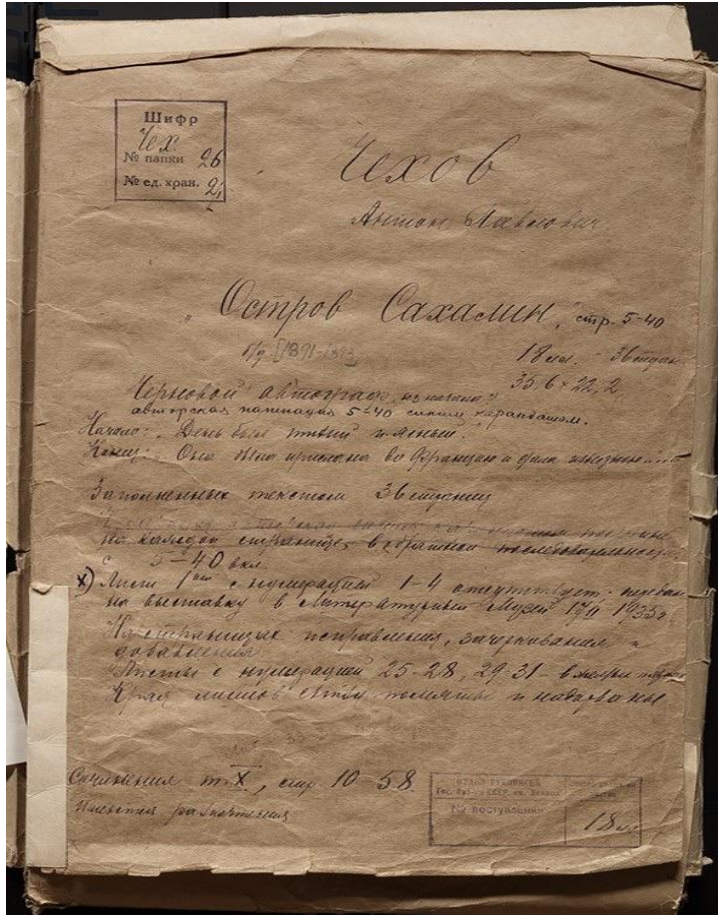 Шифр
Чех.
№ папки 26
№ ед. хран. 2,
Чехов
Антон Павлович
„Остров Сахалин", стр. 5-40
б/д [1891-1893]
18 лл. - 36 стран.
35.6 × 22,2
Черновой автограф,
авторская пагинация 5-40 синим карандашом.
Начало: „День был тихий и ясный.
Конец: „Она была прислана во Францию и дала
Заполненных текстом 36 страниц
на каждой странице, в обратной последовательности
с 5-40 вкл.
х) Листы с нумерацией 1-4 отсутствует:
на выставку в Литературный Музей 17/II 1935г
На страницах исправления, зачеркивания и
добавления.
Листы с нумерацией 25-28, 29-31 - в
Края листов помяты и надорваны
Сочинения т. X, стр. 10-58.
Имеются разночтения
№ поступления
18 лл